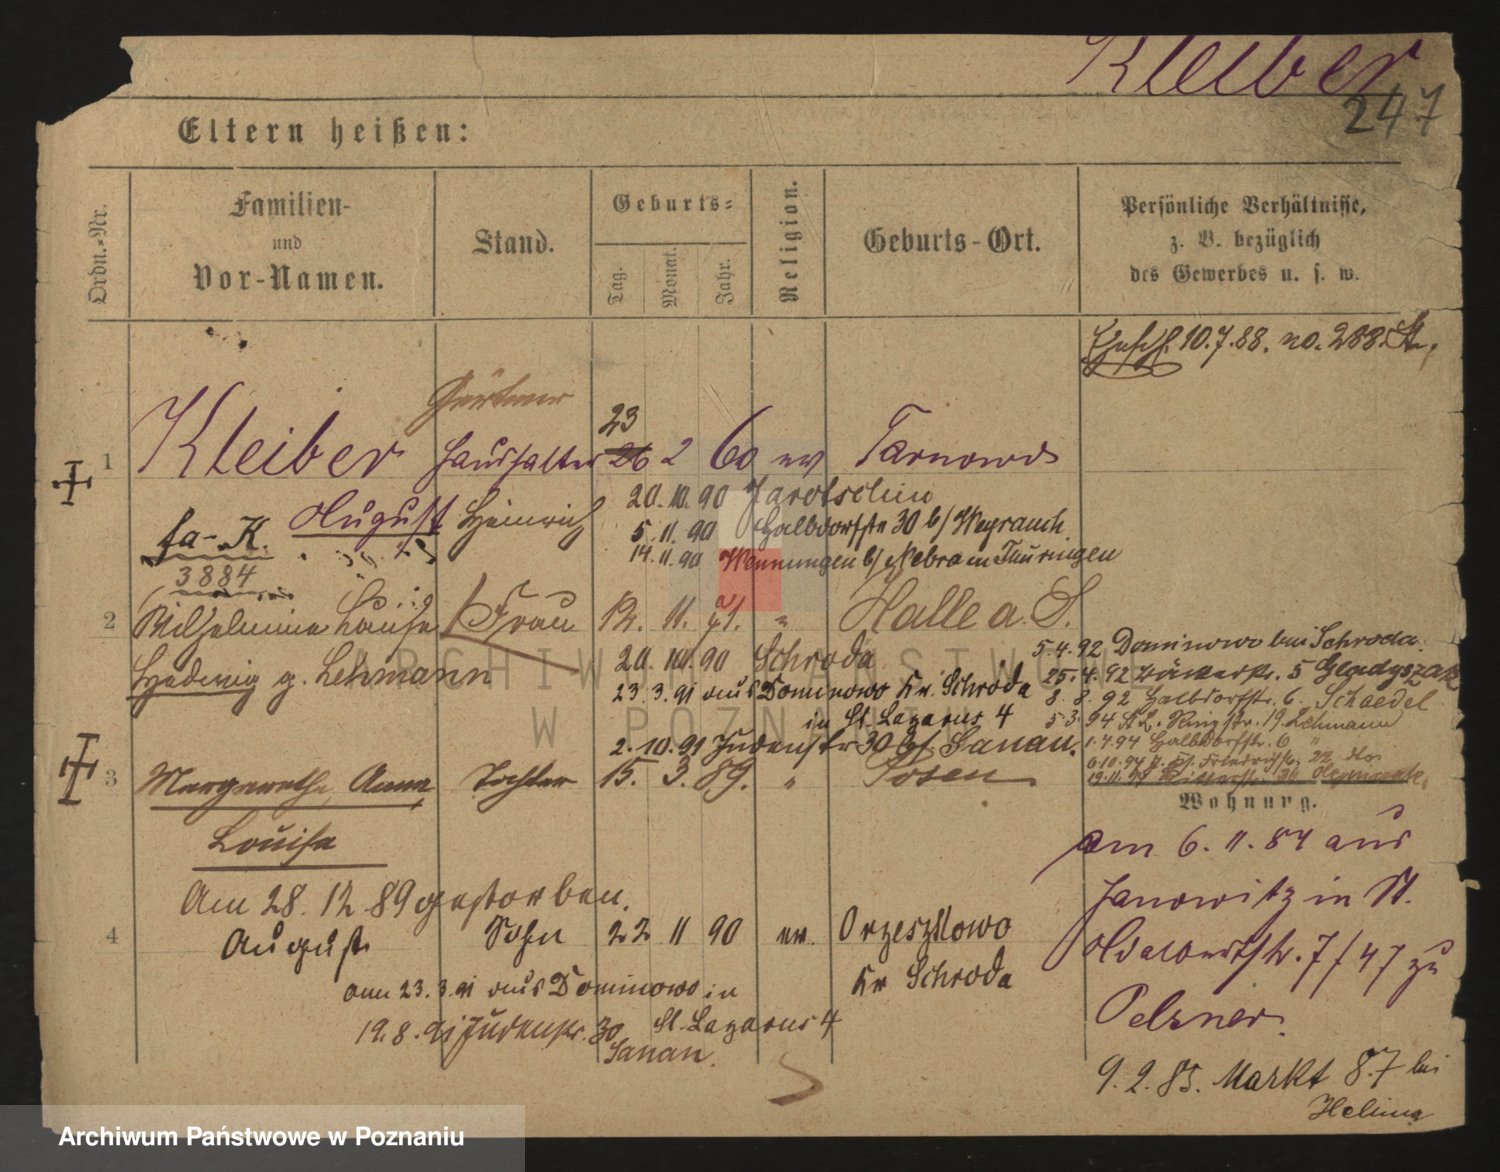 Kleiber
247
Eltern heißen:
Ordn.-Nr.
Familien-
und
Vor-Namen.
Stand.
Geburts-
Tag.
Monat.
Jahr.
Religion.
Geburts-Ort.
Persönliche Verhältnisse,
z. B. bezüglich
des Gewerbes u. s. w.
10.7.88. no. 288.
Gärtner
23
1 Kleiber Haushälter 26 2 60 ev Tarnowo
August Heinrich 20. 10. 90 Jarotschin
fa-K. 5. 11. 90 Halbdorfstr 30 b/ Weyrauch
3884 14. 11. 90 Wennungen b/ Nebra in Türingen
2 Wilhelmine Louise Frau 12. 11. 61. " Halle a. S.
Hedwig g. Lehmann 20. 10. 90 Schroda
23. 3. 91 aus Dominowo Kr. Schroda
in St. Lazarus 4
2. 10. 91 Judenstr 30 b/ Sanau.
5. 4. 92 Dominowo bei Schroda.
25. 4. 92 5 Gladyszak
8. 8. 92 Halbdorfstr. 6. Schaedel
5. 3. 94 Ringstr. 19. Lehmann
1. 4. 94 Halbdorfstr. 6 "
6. 10. 94 Friedrichstr. 22
19. 11. 94 Ritterstr 36
3 Margarethe, Anna Tochter 15. 3. 89. " Posen
Louisa
Am 28. 12. 89 gestorben.
4 August Sohn 22 11 90 ev. Orzeszkowo
Kr Schroda
am 23. 3. 91 aus Dominowo in
St. Lazarus 4
19. 8. 91 Judenstr. 30
Sanau.
Wohnung.
am 6. 11. 84 aus
Janowitz in St.
Adalbertstr. 7/47 zu
Pelzner.
9. 2. 85. Markt 87 bei
Helima
ARCHIWUM PAŃSTWOWE
W POZNANIU
Archiwum Państwowe w Poznaniu